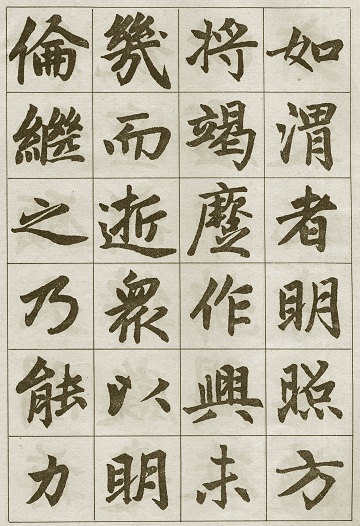 如渭者明照方
將竭作興未
幾而逝眾以明
倫繼之乃能力